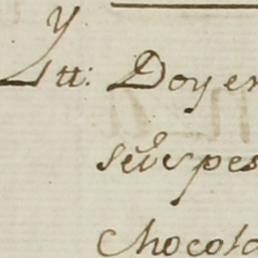 Ytt: Doy en
seis pes
Chocola